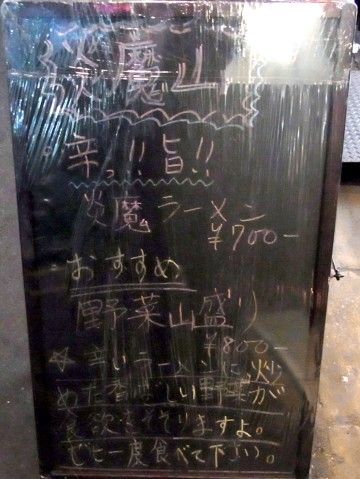 炎魔山
辛っ!!旨!!
炎魔ラーメン
¥700-
おすすめ
野菜山盛り
¥800-
☆辛いラーメンに炒
めた香ばしい野菜が
食欲をそそりますよ。
ぜヒ一度食べて下さい。